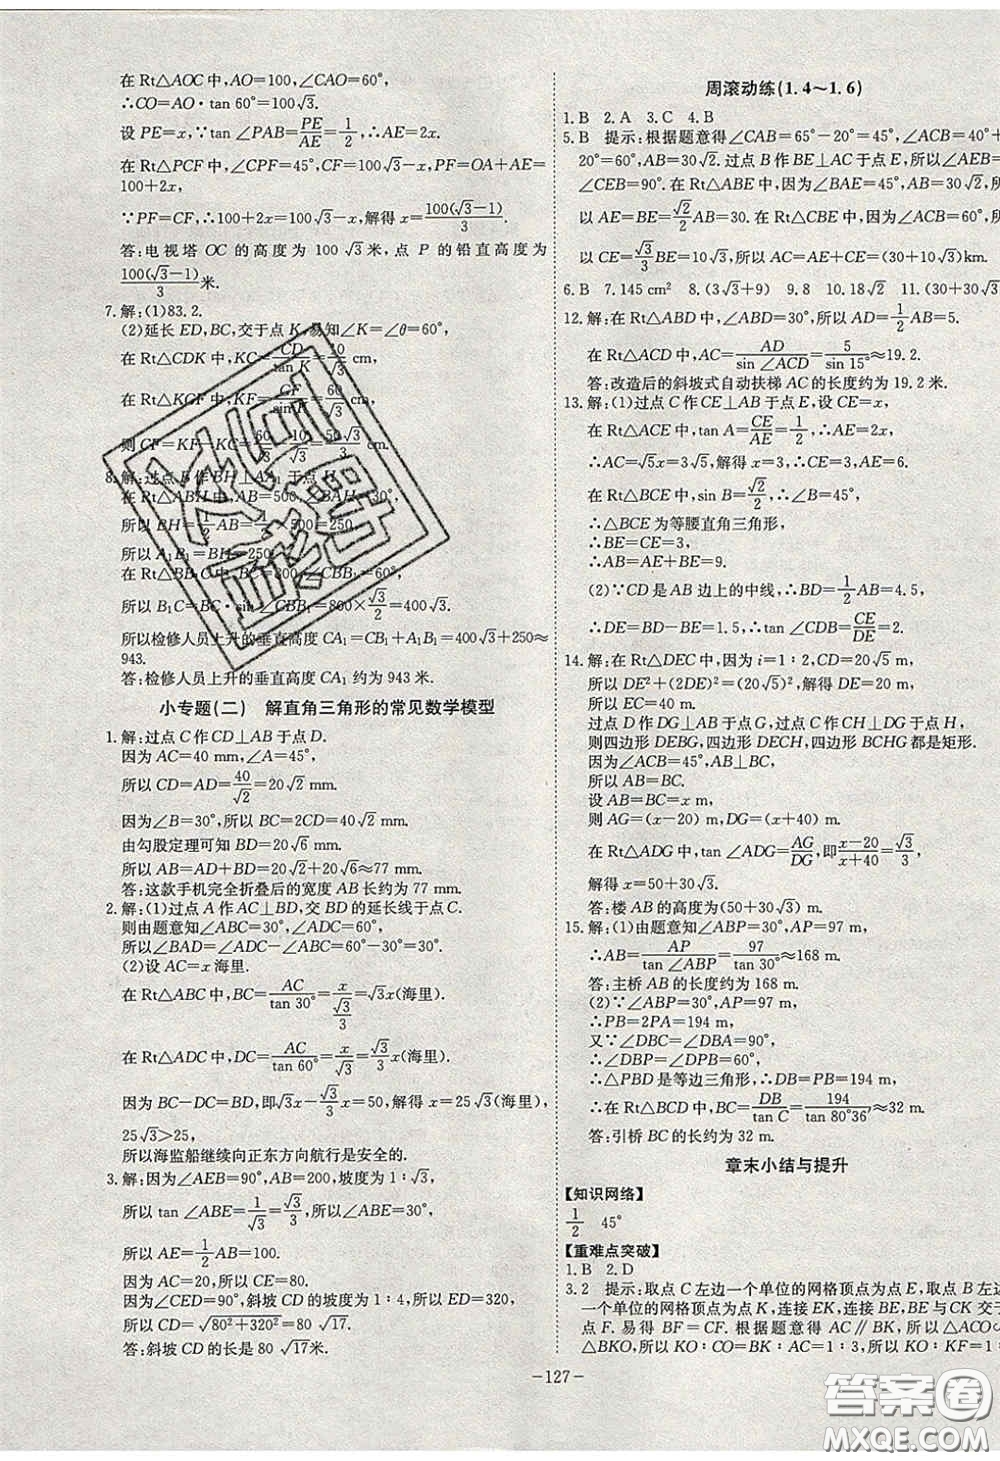 在 Rt△AOC 中,AO=100,∠CAO=60°,
∴CO=AO·tan 60°=100√3.
设 PE=x,∵tan ∠PAB=PE/AE=1/2,∴AE=2x.
在 Rt△PCF 中,∠CPF=45°,CF=100√3-x,PF=OA+AE=
100+2x,
∵PF=CF,∴100+2x=100√3-x,解得 x=100(√3-1)/3.
答:电视塔 OC 的高度为 100√3米,点 P 的铅直高度为
100(√3-1)/3米.
7.解:(1)83.2.
(2)延长 ED,BC,交于点 K,易知∠K=∠θ=60°,
在 Rt△CDK 中,KC=CD/tan K=10/√3 cm,
在 Rt△KGF 中,KF=GF/sin K=60/√3 cm,
则 CF=KF-KC=60/√3-10/√3=50√3/3(cm).
8.解:过点 B 作 BH⊥AA₁ 于点 H.
在 Rt△ABH 中,AB=500,∠BAH=30°,
所以 BH=1/2AB=1/2×500=250,
所以 A₁B₁=BH=250.
在 Rt△BB₁C 中,BC=800,∠CBB₁=60°,
所以 B₁C=BC·sin ∠CBB₁=800×√3/2=400√3.
所以检修人员上升的垂直高度 CA₁=CB₁+A₁B₁=400√3+250≈
943.
答:检修人员上升的垂直高度 CA₁ 约为 943 米.
小专题(二) 解直角三角形的常见数学模型
1.解:过点 C 作 CD⊥AB 于点 D.
因为 AC=40 mm,∠A=45°,
所以 CD=AD=40/√2=20√2 mm.
因为∠B=30°,所以 BC=2CD=40√2 mm.
由勾股定理可知 BD=20√6 mm.
所以 AB=AD+BD=20√2+20√6≈77 mm.
答:这款手机完全折叠后的宽度 AB 长约为 77 mm.
2.解:(1)过点 A 作 AC⊥BD,交 BD 的延长线于点 C.
则由题意知∠ABC=30°,∠ADC=60°,
所以∠BAD=∠ADC-∠ABC=60°-30°=30°.
(2)设 AC=x 海里.
在 Rt△ABC 中,BC=AC/tan 30°=x/(√3/3)=√3x(海里).
在 Rt△ADC 中,DC=AC/tan 60°=x/√3=√3/3x(海里).
因为 BC-DC=BD,即√3x-√3/3x=50,解得 x=25√3(海里),
25√3>25,
所以海监船继续向正东方向航行是安全的.
3.解:因为∠AEB=90°,AB=200,坡度为 1∶√3,
所以 tan ∠ABE=1/√3=√3/3,所以∠ABE=30°,
所以 AE=1/2AB=100.
因为 AC=20,所以 CE=80.
因为∠CED=90°,斜坡 CD 的坡度为 1∶4,所以 ED=320,
所以 CD=√(80²+320²)=80√17.
答:斜坡 CD 的长是 80√17米.
周滚动练(1.4~1.6)
1.B 2.A 3.C 4.B
5.B 提示:根据题意得∠CAB=65°-20°=45°,∠ACB=40°+
20°=60°,AB=30√2.过点 B 作 BE⊥AC 于点 E,所以∠AEB=
∠CEB=90°.在 Rt△ABE 中,因为∠BAE=45°,AB=30√2,所
以 AE=BE=√2/2AB=30.在 Rt△CBE 中,因为∠ACB=60°,所
以 CE=√3/3BE=10√3,所以 AC=AE+CE=(30+10√3)km.
6.B 7.145 cm² 8.(3√3+9) 9.8 10.18√2 11.(30+30√3
12.解:在 Rt△ABD 中,∠ABD=30°,所以 AD=1/2AB=5.
在 Rt△ACD 中,AC=AD/sin ∠ACD=5/sin 15°≈19.2.
答:改造后的斜坡式自动扶梯 AC 的长度约为 19.2 米.
13.解:(1)过点 C 作 CE⊥AB 于点 E,设 CE=x,
在 Rt△ACE 中,tan A=CE/AE=1/2,
∴AC=√5x=3√5,解得 x=3,∴AE=6.
在 Rt△BCE 中,sin B=√2/2,∴∠B=45°,
∴△BCE 为等腰直角三角形,
∴BE=CE=3,
∴AB=AE+BE=9.
(2)∵CD 是 AB 边上的中线,∴BD=1/2AB=4.5,
∴DE=BD-BE=1.5,∴tan ∠CDB=CE/DE=2.
14.解:在 Rt△DEC 中,因为 i=1∶2,CD=20√5 m,
所以 DE²+(2DE)²=(20√5)²,解得 DE=20 m,
所以 EC=40 m.
过点 D 作 DG⊥AB 于点 G,过点 C 作 CH⊥DG 于点 H,
则四边形 DEBG,四边形 DECH,四边形 BCHG 都是矩形.
因为∠ACB=45°,AB⊥BC,
所以 AB=BC.
设 AB=BC=x m,
则 AG=(x-20) m,DG=(x+40) m.
在 Rt△ADG 中,tan ∠ADG=AG/DG,即(x-20)/(x+40)=√3/3,
解得 x=50+30√3.
答:楼 AB 的高度为(50+30√3) m.
15.解:(1)由题意知∠ABP=30°,AP=97 m,
∴AB=AP/tan ∠ABP=97/tan 30°≈168 m.
答:主桥 AB 的长度约为 168 m.
(2)∵∠ABP=30°,AP=97 m,
∴PB=2PA=194 m,
又∵∠DBC=∠DBA=90°,
∴∠DBP=∠DPB=60°,
∴△PBD 是等边三角形,∴DB=PB=194 m.
∴在 Rt△BCD 中,BC=DB/tan C=194/tan 80°36′≈32 m.
答:引桥 BC 的长约为 32 m.
章末小结与提升
【知识网络】
1/2 45°
【重难点突破】
1.B 2.D
3.2 提示:取点 C 左边一个单位的网格顶点为点 E,取点 B 左
一个单位的网格顶点为点 K,连接 EK,连接 BE,BE 与 CK 交于
点 F.易得 BF=CF.根据题意得 AC∥BK,所以△ACO∽
△BKO,所以 KO∶CO=BK∶AC=1∶3,所以 KO∶KF=1
-127-
答案圈
MXQE.COM